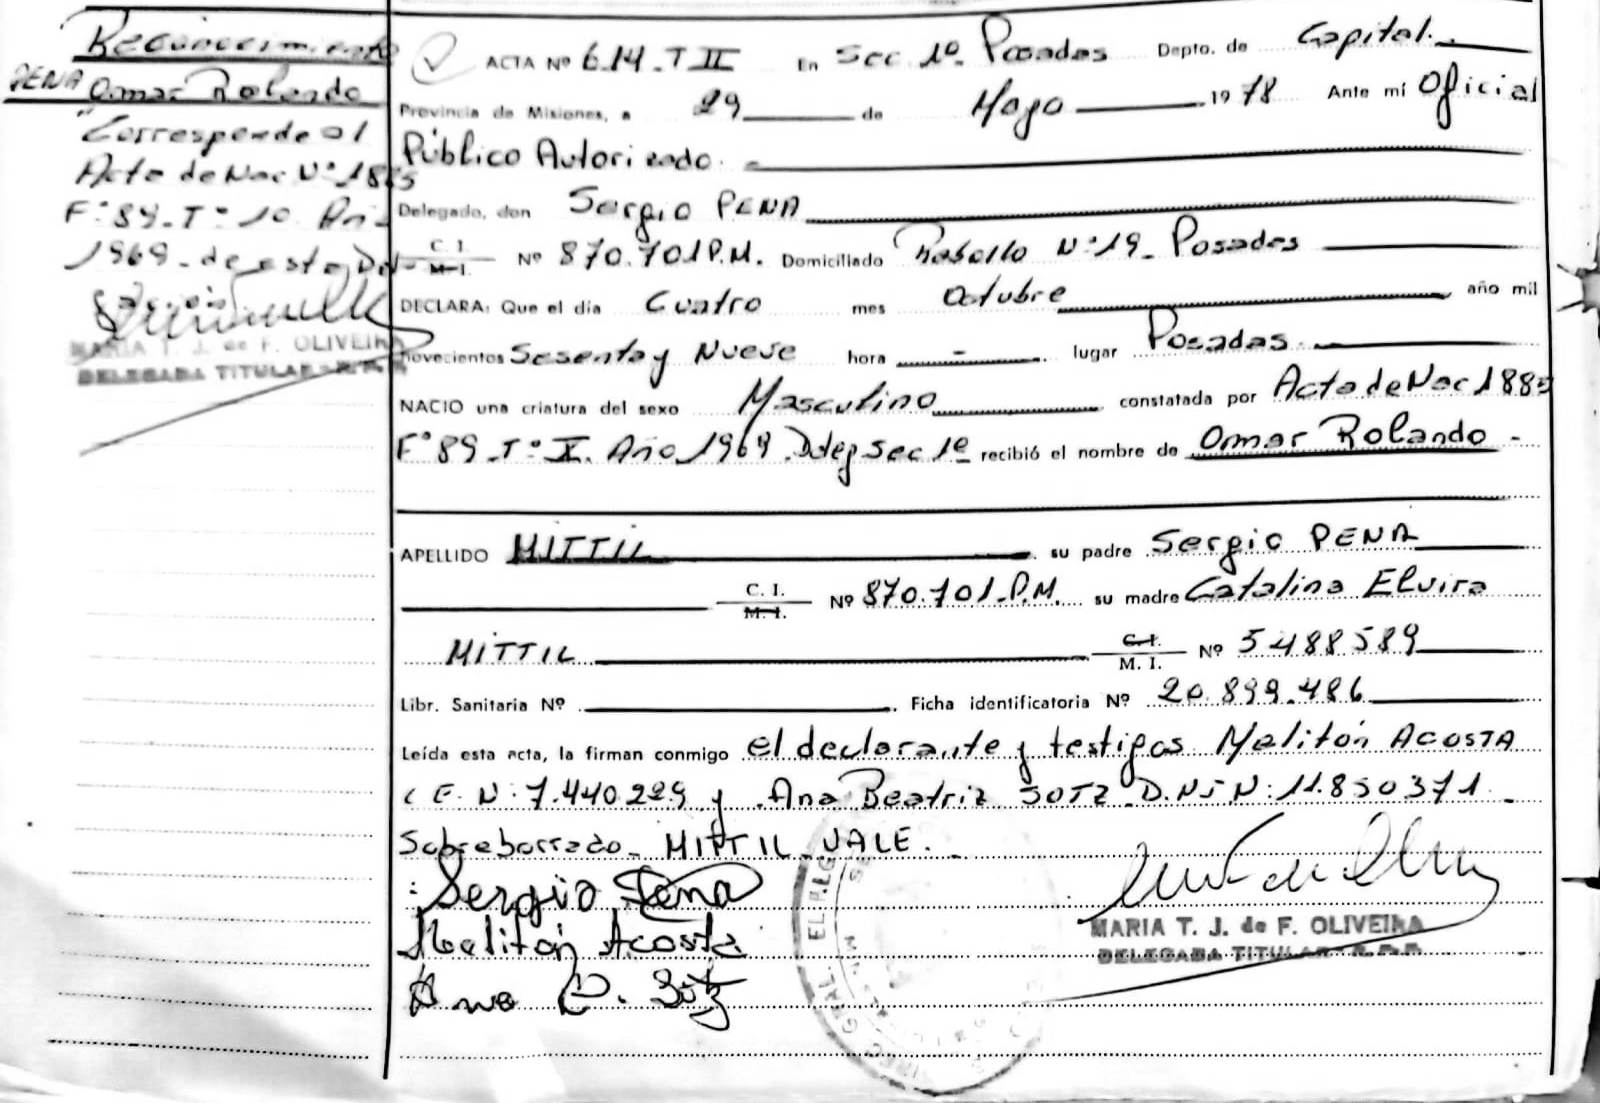 Reconocimiento
PENA Omar Rolando
"Corresponde al
Acta de Nac Nº 1885
Fº 89 - Tº 10. Año
1969 - de esta Del-
MARIA T. J. de F. OLIVEIRA
DELEGADA TITULAR - R.P.P.
ACTA Nº 614 - T II En Sec 1º. Posadas Depto. de Capital.
Provincia de Misiones, a 29 de Mayo 1978 Ante mí Oficial
Público Autorizado.
Delegado, don Sergio PENA
C. I. M. I. Nº 870.701 P.M. Domiciliado Nº 19 - Posadas
DECLARA: Que el día Cuatro mes Octubre año mil
novecientos Sesenta y Nueve hora - lugar Posadas.
NACIO una criatura del sexo Masculino constatada por Acta de Nac 1885
Fº 89 - Tº X. Año 1969 Sec 1º recibió el nombre de Omar Rolando -
APELLIDO MITTIL su padre Sergio PENA
C. I. M. I. Nº 870.701 - P.M. su madre Catalina Elvira
MITTIL C. I. M. I. Nº 5488589
Libr. Sanitaria Nº Ficha identificatoria Nº 20.899.486
Leída esta acta, la firman conmigo el declarante y testigos Melitón ACOSTA
y Ana Beatriz SOTZ D.N.I. N: 11.850371.
Sobreborrado - MITTIL - VALE.
Sergio Pena
Melitón Acosta
Ana B. Sotz
MARIA T. J. de F. OLIVEIRA
DELEGADA TITULAR - R.P.P.